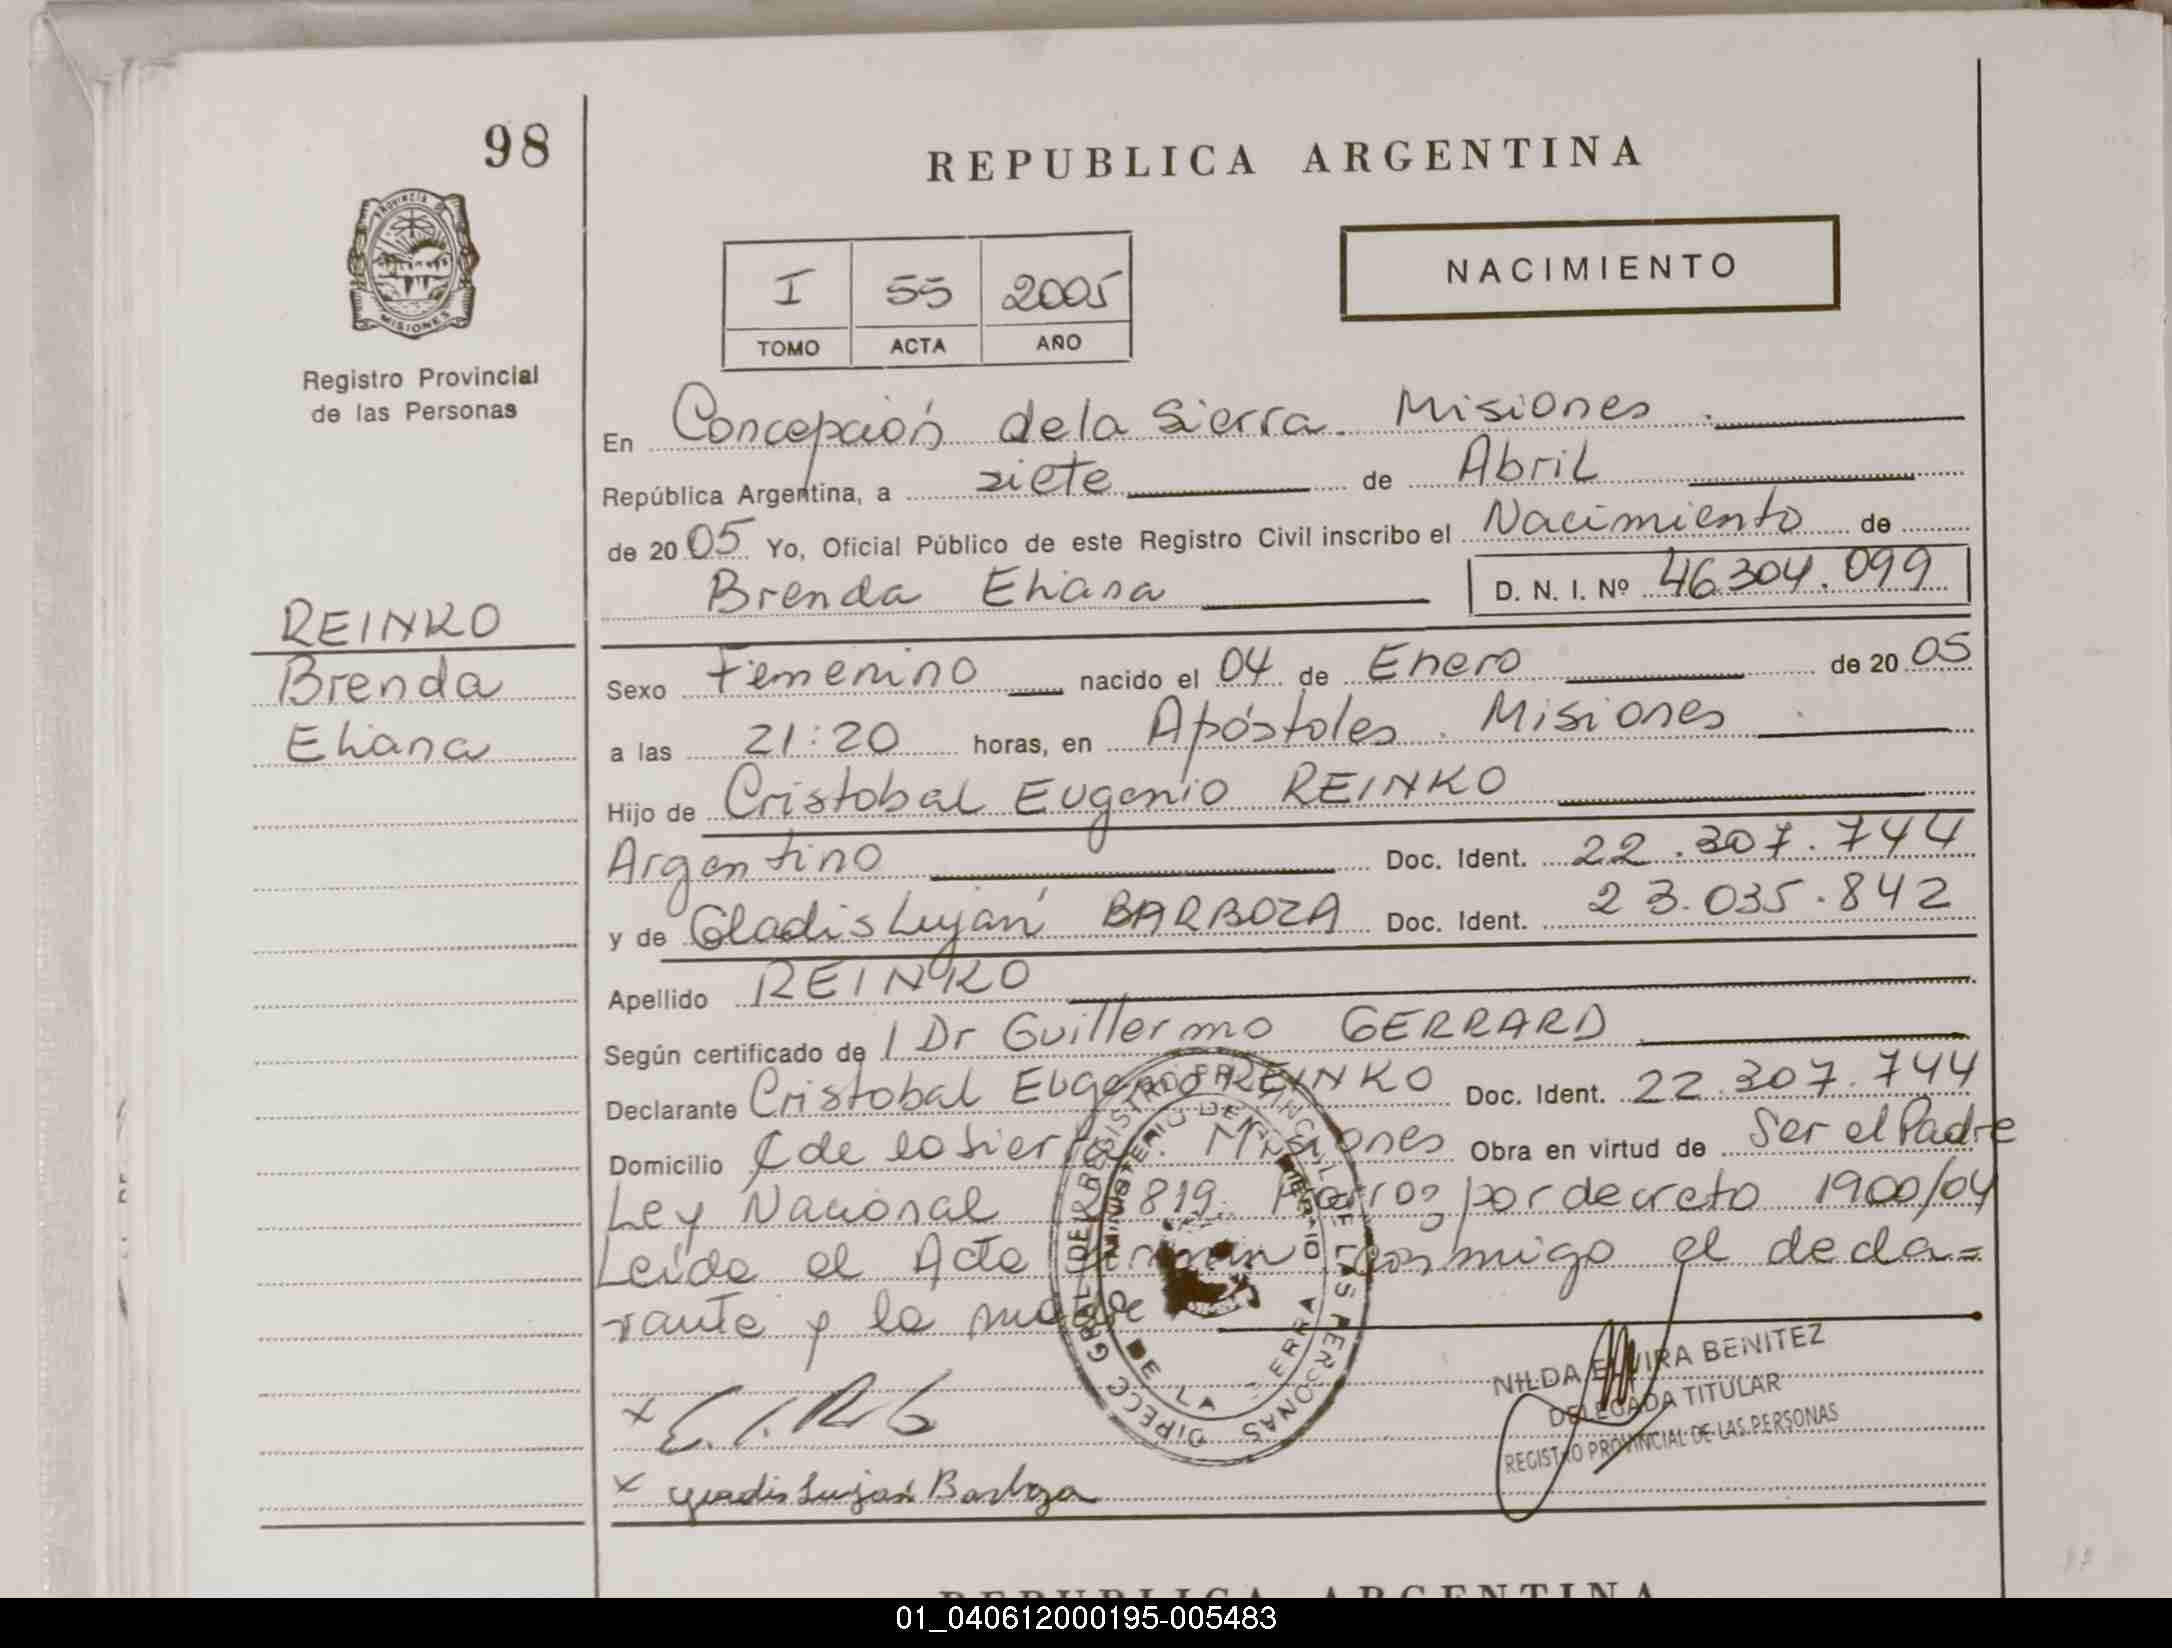 98
REPUBLICA ARGENTINA
PROVINCIA DE
MISIONES
Registro Provincial
de las Personas
I 55 2005
TOMO ACTA AÑO
NACIMIENTO
En Concepción de la Sierra. Misiones.
República Argentina, a siete de Abril
de 2005 Yo, Oficial Público de este Registro Civil inscribo el Nacimiento de
Brenda Eliana D. N. I. Nº 46.304.099
REINKO
Brenda
Eliana
Sexo Femenino nacido el 04 de Enero de 2005
a las 21:20 horas, en Apóstoles. Misiones
Hijo de Cristobal Eugenio REINKO
Argentino Doc. Ident. 22.307.744
y de Gladis Luján BARBOZA Doc. Ident. 23.035.842
Apellido REINKO
Según certificado de l Dr Guillermo GERRARD
Declarante Cristobal Eugenio REINKO Doc. Ident. 22.307.744
Domicilio C de la Sierra. Misiones Obra en virtud de Ser el Padre
Ley Nacional 819. por decreto 1900/04
Leída el Acta firman conmigo el decla=
rante y la madre
DIPECC GRAL DEL REGISTRO PROVINCIAL DE LAS PERSONAS
MINISTERIO DE
DE LA SIERRA
NILDA ELVIRA BENITEZ
DELEGADA TITULAR
REGISTRO PROVINCIAL DE LAS PERSONAS
x
x Gladis Luján Barboza
REPUBLICA ARGENTINA
01_040612000195-005483